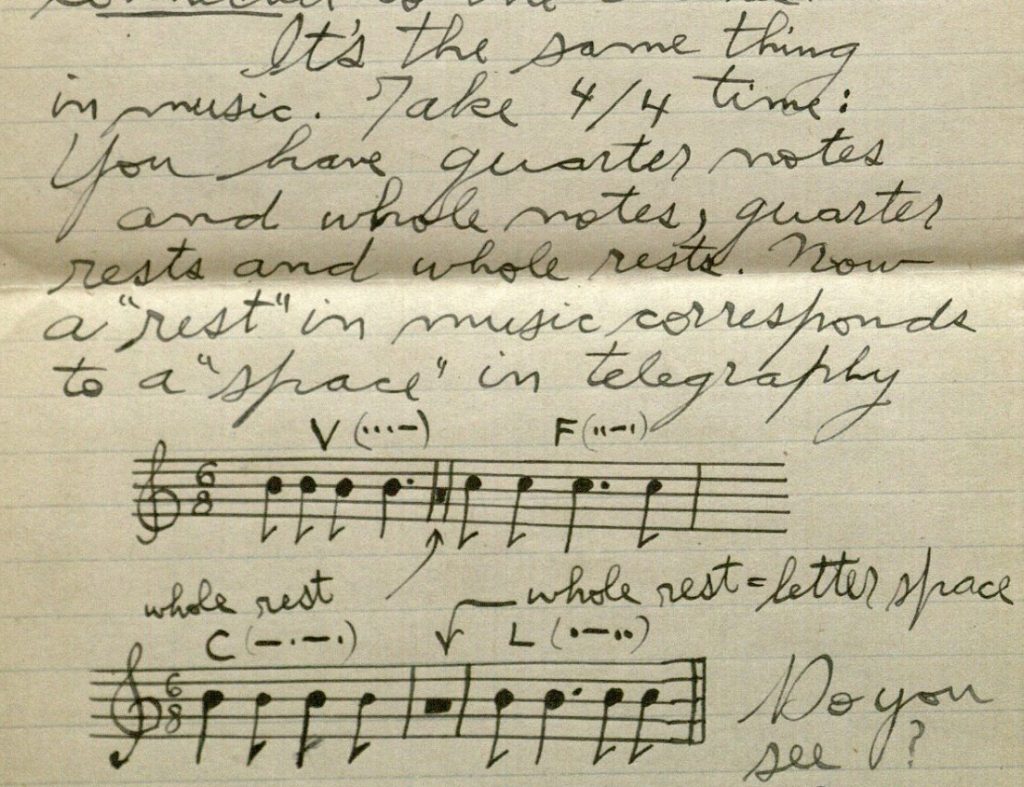 It's the same thing
in music. Take 4/4 time:
You have quarter notes
and whole notes, quarter
rests and whole rests. Now
a "rest" in music corresponds
to a "space" in telegraphy
V (···–) F (··–·)
6
8
whole rest
whole rest = letter space
C (–·–·) L (·–··)
6
8
Do you
see?